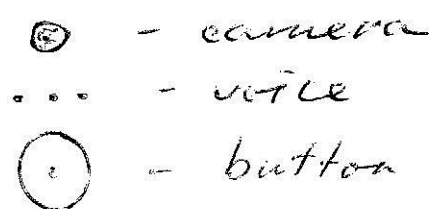 - camera
- voice
- button